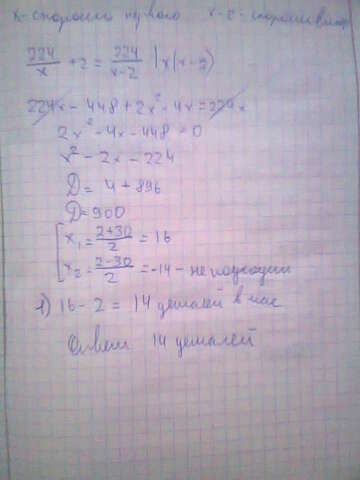 x - скорость первого x-2 - скорость
224/x + 2 = 224/(x-2) | x(x-2)
224x - 448 + 2x² - 4x = 224x
2x² - 4x - 448 = 0
x² - 2x - 224
D = 4 + 896
D = 900
[ x₁ = (2+30)/2 = 16
x₂ = (2-30)/2 = -14 - не подходит
1) 16 - 2 = 14 деталей в час
Ответ 14 деталей